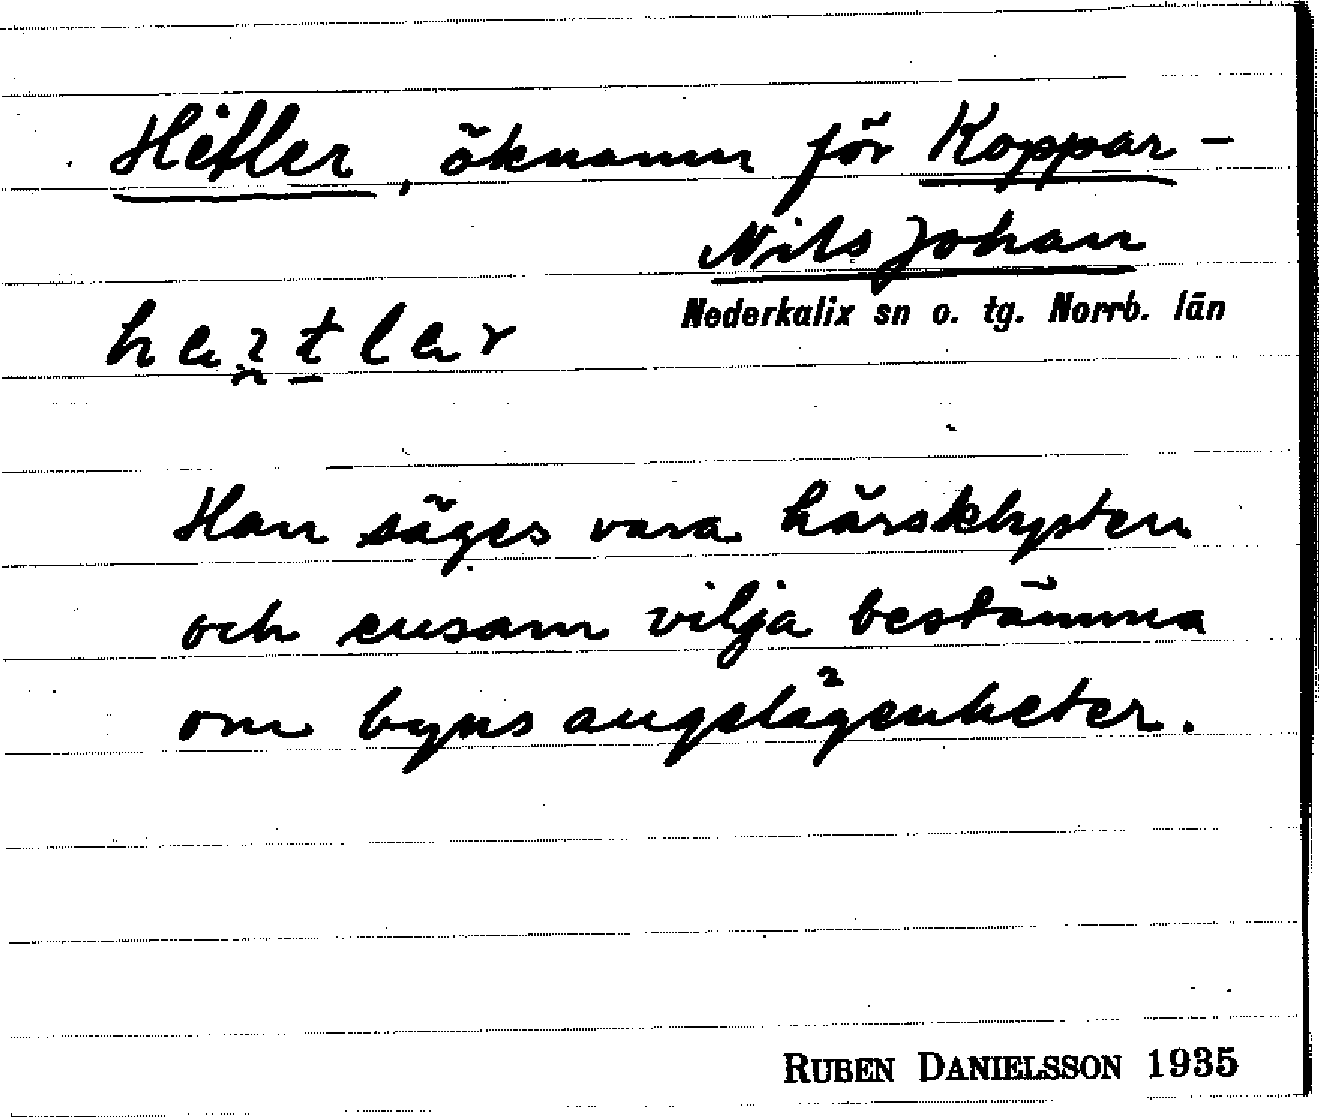 Hitler, öknamn för Koppar-
Nils Johan
Nederkalix sn o. tg. Norrb. län
Han säges vara härsklysten
och ensam vilja bestämma
om byns angelägenheter.
RUBEN DANIELSSON 1935